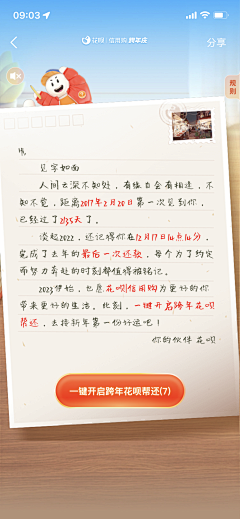 09:03
花呗 | 信用购 跨年庄
分享
规则
嗨,
见字如面
人间去深不知处,有缘自会有相逢,不
知不觉,距离2017年2月20日第一次见到你,
已经过了2135天了。
谈起2022,还记得你在12月17日14点14分,
完成了去年的最后一次还款,每个为了约定
而努力奔赴的时刻都值得被铭记。
2023伊始,也愿花呗信用购为更好的你
带来更好的生活。此刻,一键开启跨年花呗
帮还,去接新年第一份好运吧!
你的伙伴 花呗
一键开启跨年花呗帮还(7)